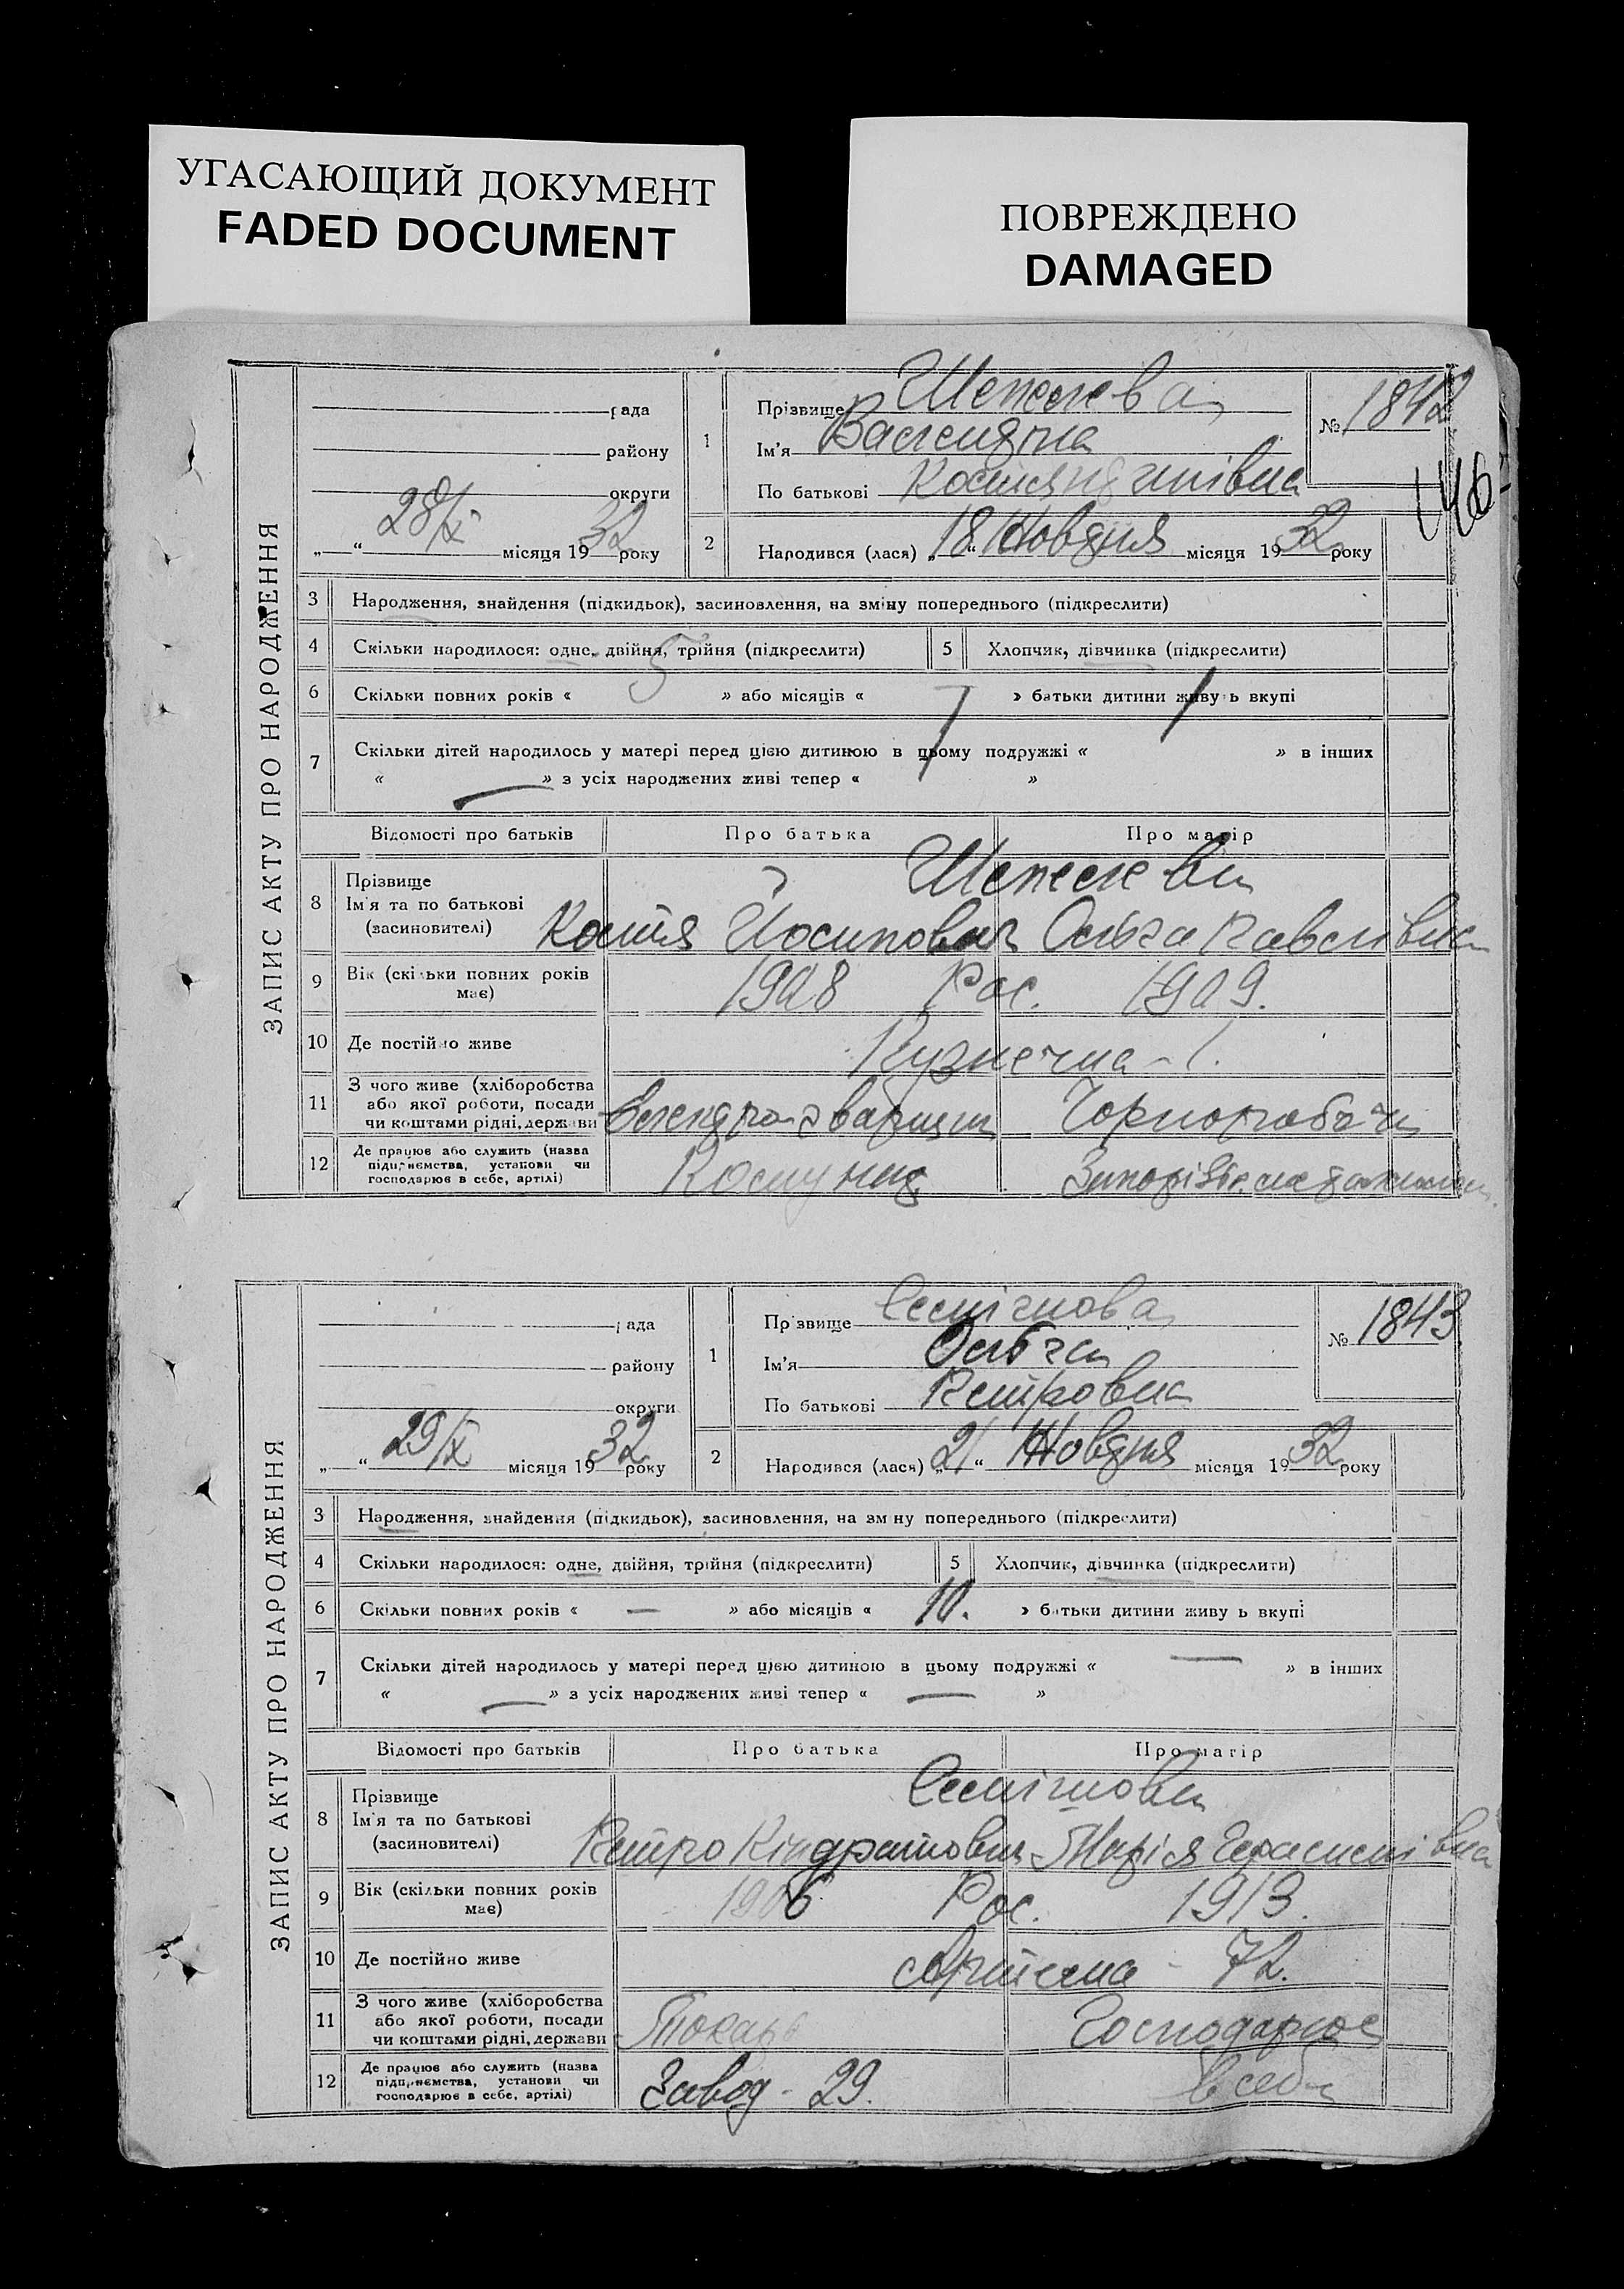 УГАСАЮЩИЙ ДОКУМЕНТ
FADED DOCUMENT
ПОВРЕЖДЕНО
DAMAGED
ЗАПИС АКТУ ПРО НАРОДЖЕННЯ
рада
району
округи
„ “ 28/X місяця 1932 року
1
Прізвище
Ім'я
По батькові
№ 1842
146
2 Народився (лася) „18“ Жовдня місяця 1932 року
3 Народження, знайдення (підкидьок), засиновлення, на зміну попереднього (підкреслити)
4 Скільки народилося: одне, двійня, трійня (підкреслити) 5 Хлопчик, дівчинка (підкреслити)
6 Скільки повних років « 5 » або місяців « » батьки дитини живуть вкупі
7 Скільки дітей народилось у матері перед цією дитиною в цьому подружжі « » в інших
« — » з усіх народжених живі тепер « »
Відомості про батьків Про батька Про матір
8 Прізвище
Ім'я та по батькові Костя Йосипович Ольга Павлівна
(засиновителі)
9 Вік (скільки повних років має) 1908 Рос. 1909.
10 Де постійно живе Кузнечна - 1.
11 З чого живе (хліборобства
або якої роботи, посади
чи коштами рідні, держави
12 Де працює або служить (назва
підприємства, установи чи
господарює в себе, артілі)
ЗАПИС АКТУ ПРО НАРОДЖЕННЯ
рада
району
округи
„ “ 29/X місяця 1932 року
1
Прізвище
Ім'я Ольга
По батькові Петровна
№ 1843
2 Народився (лася) „21“ Жовдня місяця 1932 року
3 Народження, знайдення (підкидьок), засиновлення, на зміну попереднього (підкреслити)
4 Скільки народилося: одне, двійня, трійня (підкреслити) 5 Хлопчик, дівчинка (підкреслити)
6 Скільки повних років « — » або місяців « 10. » батьки дитини живуть вкупі
7 Скільки дітей народилось у матері перед цією дитиною в цьому подружжі « — » в інших
« — » з усіх народжених живі тепер « — »
Відомості про батьків Про батька Про матір
8 Прізвище
Ім'я та по батькові Петро Кіндратович Марія Герасимівна
(засиновителі)
9 Вік (скільки повних років має) 1906 Рос. 1913.
10 Де постійно живе Артема - 72.
11 З чого живе (хліборобства
або якої роботи, посади
чи коштами рідні, держави Токарь Господарює
12 Де працює або служить (назва
підприємства, установи чи
господарює в себе, артілі) Завод - 29. в себе